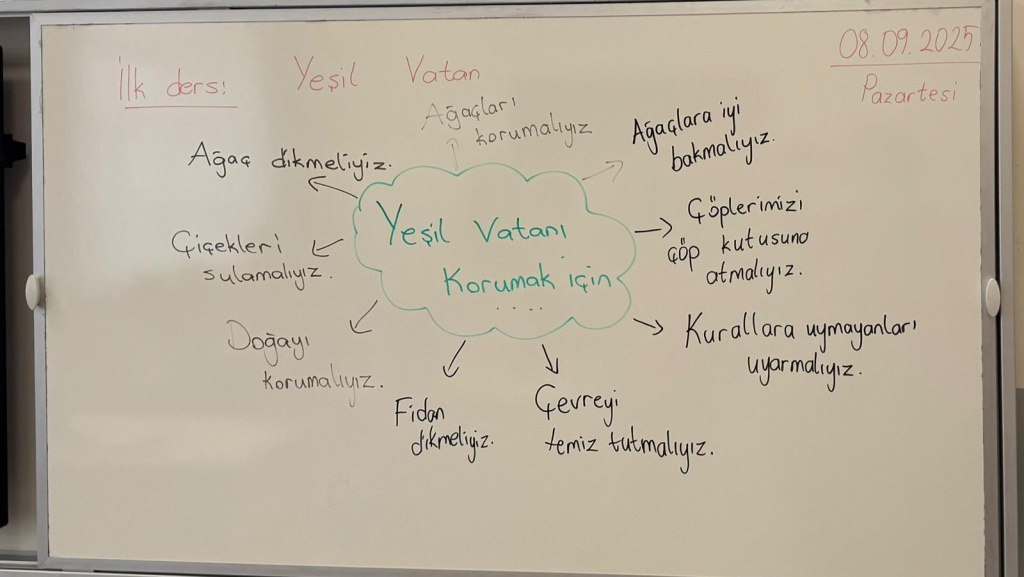 08.09.2025
Pazartesi
İlk ders:  Yeşil Vatan
Ağaçları
korumalıyız
Ağaçlara iyi
bakmalıyız.
Ağaç dikmeliyiz.
Çöplerimizi
çöp kutusuna
atmalıyız.
Yeşil Vatanı
Korumak için
....
Çiçekleri
sulamalıyız.
Kurallara uymayanları
uyarmalıyız.
Doğayı
korumalıyız.
Fidan
dikmeliyiz.
Çevreyi
temiz tutmalıyız.